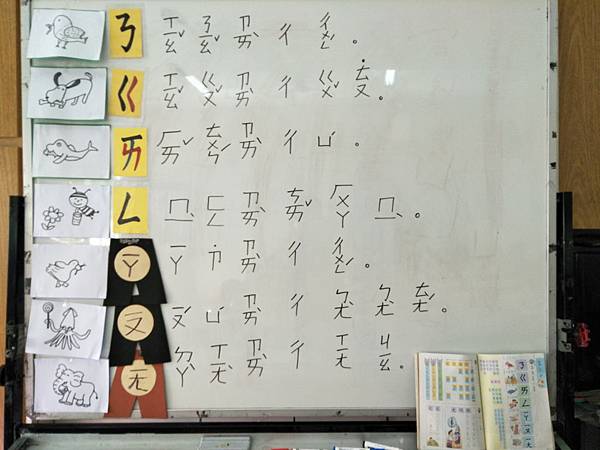 ㄋ ㄒㄧㄠˇ ㄋㄧㄠˇ ㄗㄞˋ ㄔ ㄔㄨㄥˊ。
ㄍ ㄒㄧㄠˇ ㄍㄡˇ ㄗㄞˋ ㄔ ㄍㄨˇ ˙ㄊㄡ。
ㄞ ㄏㄞˇ ㄊㄨㄣˊ ㄗㄞˋ ㄔ ㄩˊ。
ㄥ ㄇㄧˋ ㄈㄥ ㄗㄞˋ ㄘㄞˇ ㄏㄨㄚ ㄇㄧˋ。
ㄧㄚ ㄧㄚ ˙ㄗ ㄗㄞˋ ㄔ ㄔㄨㄥˊ。
ㄧㄡ ㄧㄡˊ ㄩˊ ㄗㄞˋ ㄔ ㄅㄤˋ ㄅㄤˋ ㄊㄤˊ。
ㄧㄤ ㄉㄚˋ ㄒㄧㄤˋ ㄗㄞˋ ㄔ ㄒㄧㄤ ㄐㄧㄠ。